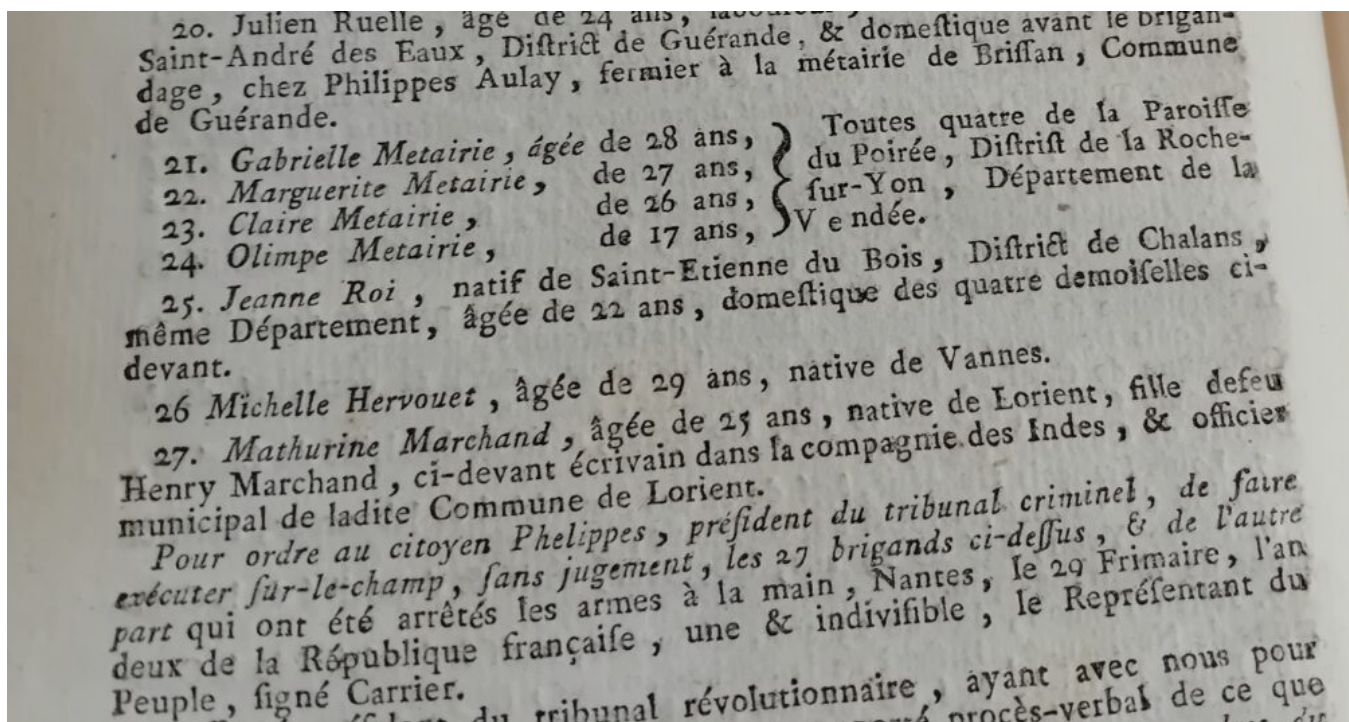 20. Julien Ruelle, âgé de 24 ans,
Saint-André des Eaux, Diſtrict de Guérande, & domeſtique avant le brigan-
dage, chez Philippes Aulay, fermier à la métairie de Briſſan, Commune
de Guérande.
21. Gabrielle Metairie, âgée de 28 ans,
22. Marguerite Metairie, de 27 ans,
23. Claire Metairie, de 26 ans,
24. Olimpe Metairie, de 17 ans,
Toutes quatre de la Paroiſſe
du Poirée, Diſtriſt de la Roche-
ſur-Yon, Département de la
V e ndée.
25. Jeanne Roi, natif de Saint-Etienne du Bois, Diſtrict de Chalans,
même Département, âgée de 22 ans, domeſtique des quatre demoiſelles ci-
devant.
26 Michelle Hervouet, âgée de 29 ans, native de Vannes.
27. Mathurine Marchand, âgée de 25 ans, native de Lorient, fille defeu
Henry Marchand, ci-devant écrivain dans la compagnie des Indes, & officier
municipal de ladite Commune de Lorient.
Pour ordre au citoyen Phelippes, préſident du tribunal criminel, de faire
exécuter ſur-le-champ, ſans jugement, les 27 brigands ci-deſſus, & de l'autre
part qui ont été arrêtés les armes à la main, Nantes, le 29 Frimaire, l'an
deux de la République françaiſe, une & indiviſible, le Repréſentant du
Peuple, ſigné Carrier.
du tribunal révolutionnaire, ayant avec nous pour
procès-verbal de ce que